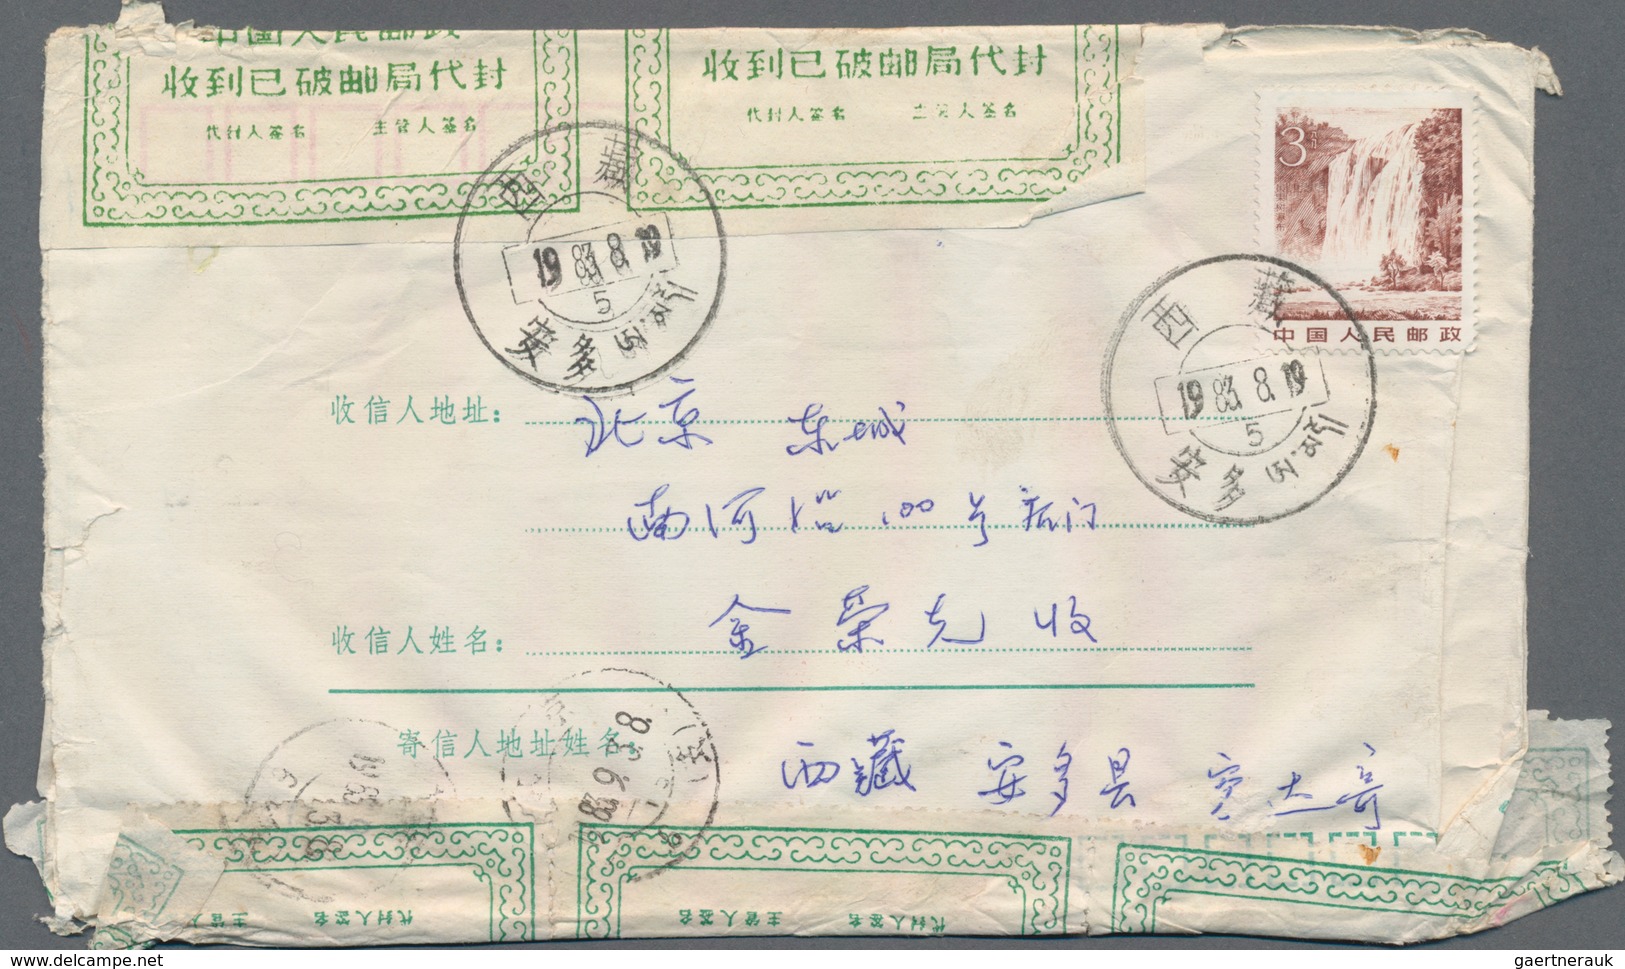 中国人民邮政
收到已破邮局代封
代封人签名 主管人签名
收到已破邮局代封
代封人签名 主管人签名
3
中国人民邮政
西藏
1983.8.19
5
安多
西藏
1983.8.19
5
安多
收信人地址：
北京 东城
南河沿100号后门
收信人姓名：
金荣光 收
寄信人地址姓名：
西藏 安多县
主管人签名 代封人签名
主管人签名 代封人签名
主管人签名
www.delcampe.net
gaertnerauk